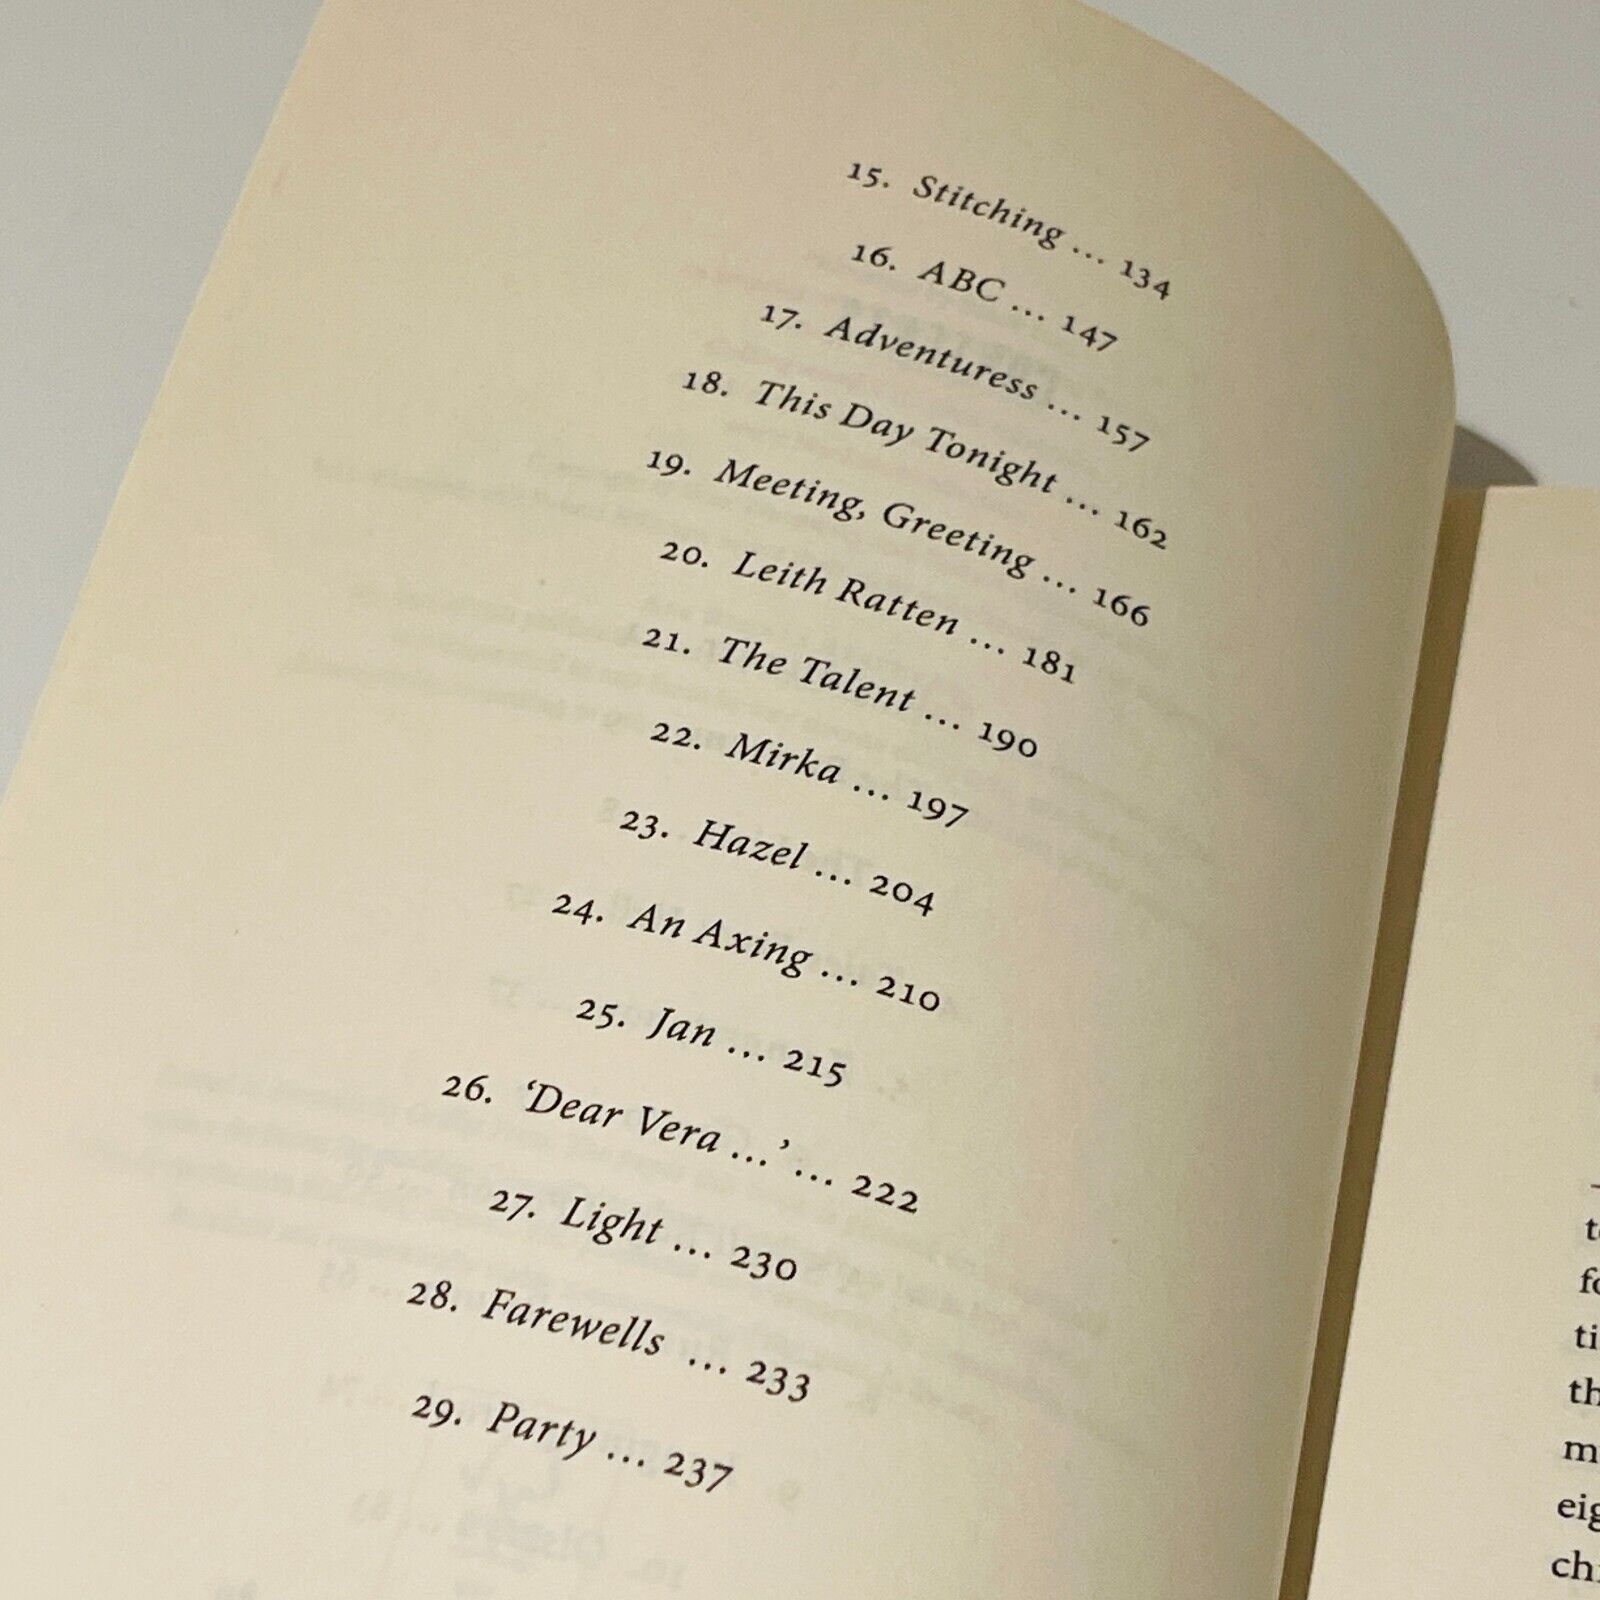 15. Stitching ... 134
16. ABC ... 147
17. Adventuress ... 157
18. This Day Tonight ... 162
19. Meeting, Greeting ... 166
20. Leith Ratten ... 181
21. The Talent ... 190
22. Mirka ... 197
23. Hazel ... 204
24. An Axing ... 210
25. Jan ... 215
26. ‘Dear Vera ...’ ... 222
27. Light ... 230
28. Farewells ... 233
29. Party ... 237